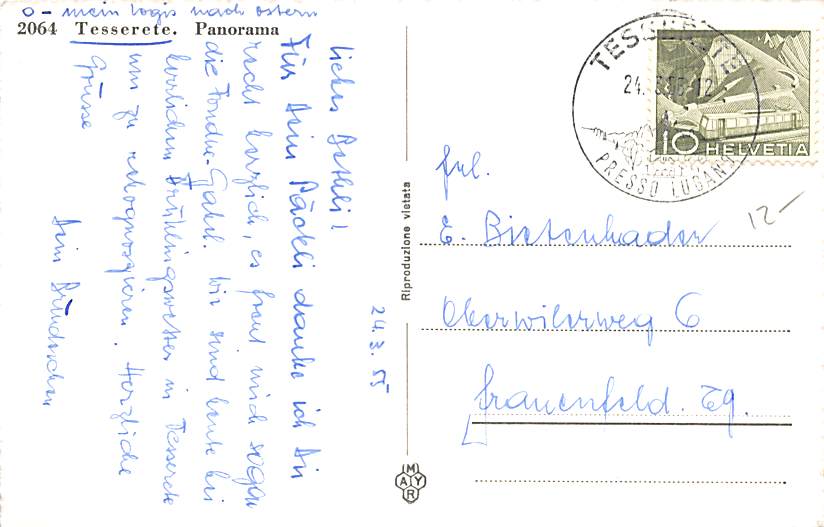 o - mein logis nach ostern
2064 Tesserete. Panorama
liebes Bethli!
Für Dein Päckli danke ich Dir
recht herzlich, es freut mich sogar
die Fondue-Gabel. Wir sind heute bei
herrlichem Frühlingswetter in Tesserete
um zu rekognoszieren. Herzliche
Grüsse
Dein
24.3.55
Riproduzione vietata
MAYR
TESSERETE
24. 3.55-12
PRESSO LUGANO
10 HELVETIA
12-
frl.
E. Bietenhader
Oberwilerweg 6
Frauenfeld. Tg.